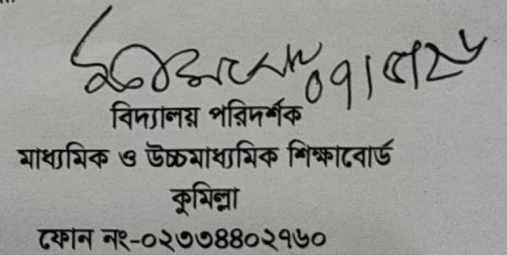 ০৭/৫/২৬
বিদ্যালয় পরিদর্শক
মাধ্যমিক ও উচ্চমাধ্যমিক শিক্ষাবোর্ড
কুমিল্লা
ফোন নং-০২৩৩৪৪০২৭৬০